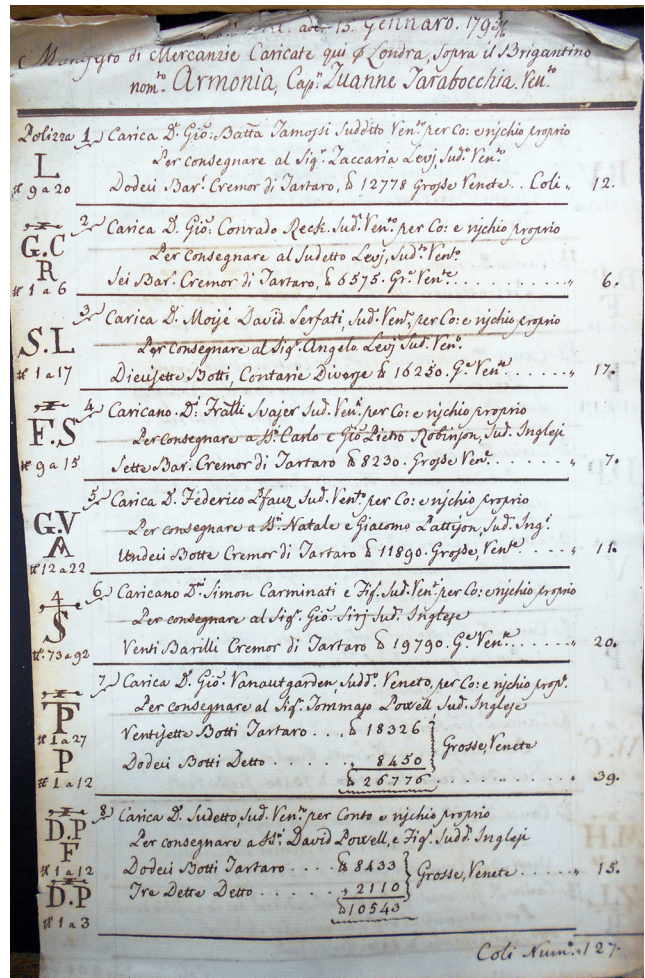 15. Gennaro. 179
di Mercanzie Caricate qui Londra, sopra il Brigantino
nom.to Armonia, Cap.n Zuanne Tarabocchia. Ven.to
Polizza 1 Carica D. Gio: Batta Tamossi Suddito Ven.to per Co: e rischio proprio
L
Per consegnare al Sig.r Zaccaria Levj, Sud.o Ven.to
# 9 a 20 Dodeci Bar.i Cremor di Tartaro, 12778 Grosse Venete.. Coli „ 12.
2 Carica D. Gio: Conrado Reck. Sud. Ven.to per Co: e rischio proprio
G.C
R
Per consegnare al Sudetto Levj, Sud.to Ven.to
# 1 a 6 Sei Bar.i Cremor di Tartaro, 6575. Gr.e Ven.te............„ 6.
3 Carica D. Moisé David Serfati, Sud. Ven.to, per Co: e rischio proprio
S.L
Per consegnare al Sig.r Angelo Levj Sud. Ven.to
# 1 a 17 Diecisette Botti, Contarie Diverse 16250. G.e Ven.te.......„ 17.
4 Caricano D.i Fratelli Svajer Sud. Ven.ti per Co: e rischio proprio
F.S
Per consegnare a S.ri Carlo e Gio Pietro Robinson, Sud. Inglesi
# 9 a 15 Sette Bar. Cremor di Tartaro 8230. Grosse Ven.e.......„ 7.
5 Carica D. Federico Pfauz Sud. Ven.to per Co: e rischio proprio
G.V
Per consegnare a S.ri Natale e Giacomo Pattison, Sud. Ing.i
# 12 a 22 Undeci Botte Cremor di Tartaro 11890. Grosse, Ven.te.....„ 11.
6 Caricano D.ni Simon Carminati e Fif. Sud. Ven.ti per Co: e rischio proprio
4
S
Per consegnare al Sig.r Gio: Sirj Sud. Inglese
#. 73 a 92 Venti Barilli Cremor di Tartaro 19790. G.e Ven.te.......„ 20.
7 Carica D. Gio: Vanautgarden, Sudd.o Veneto, per Co: e rischio prop.o
T
P
Per consegnare al Sig.r Tommaso Powell Sud. Inglese
# 1 a 27 Ventisette Botti Tartaro.... 18326
P
Grosse, Venete
Dodeci Botti Detto.......„ 8450
# 1 a 12 26776.........„ 39.
8 Carica D. Sudetto, Sud. Ven.to per Conto e rischio proprio
D.P
F
Per consegnare a S.ri David Powell, e Fig.i Sudd.i Inglesi
# 1 a 12 Dodeci Botti Tartaro..... 8433 Grosse, Venete......„ 15.
D.P
Tre Dette Detto.......„ 2110
# 1 a 3 10543
Coli Num.o „ 127.